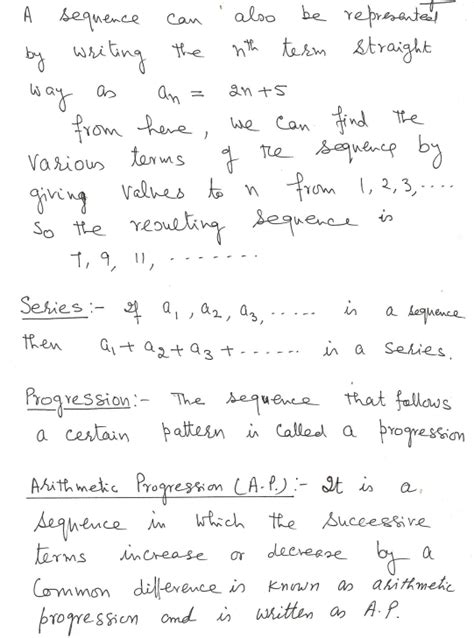 A sequence can also be represented
by writing the nth term straight
way as an = 2n+5
from here, we can find the
various terms of the sequence by
giving values to n from 1, 2, 3, ....
So the resulting sequence is
7, 9, 11, - - - - - - -
Series:- If a1, a2, a3, ..... is a sequence
then a1 + a2 + a3 + ...... is a series.
Progression:- The sequence that follows
a certain pattern is called a progression
Arithmetic Progression (A.P.):- It is a
sequence in which the successive
terms increase or decrease by a
Common difference is known as arithmetic
progression and is written as A.P.